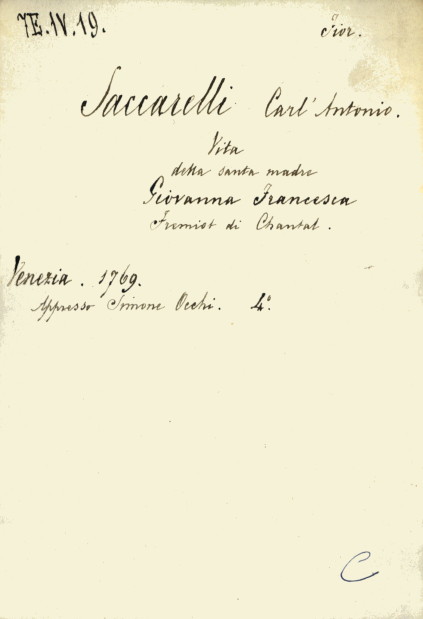 7E.IV.19.
Fior.
Saccarelli Carl'Antonio.
Vita
della santa madre
Giovanna Francesca
Fremiot di Chantal.
Venezia. 1769.
Appresso Simone Occhi. 4°.
C